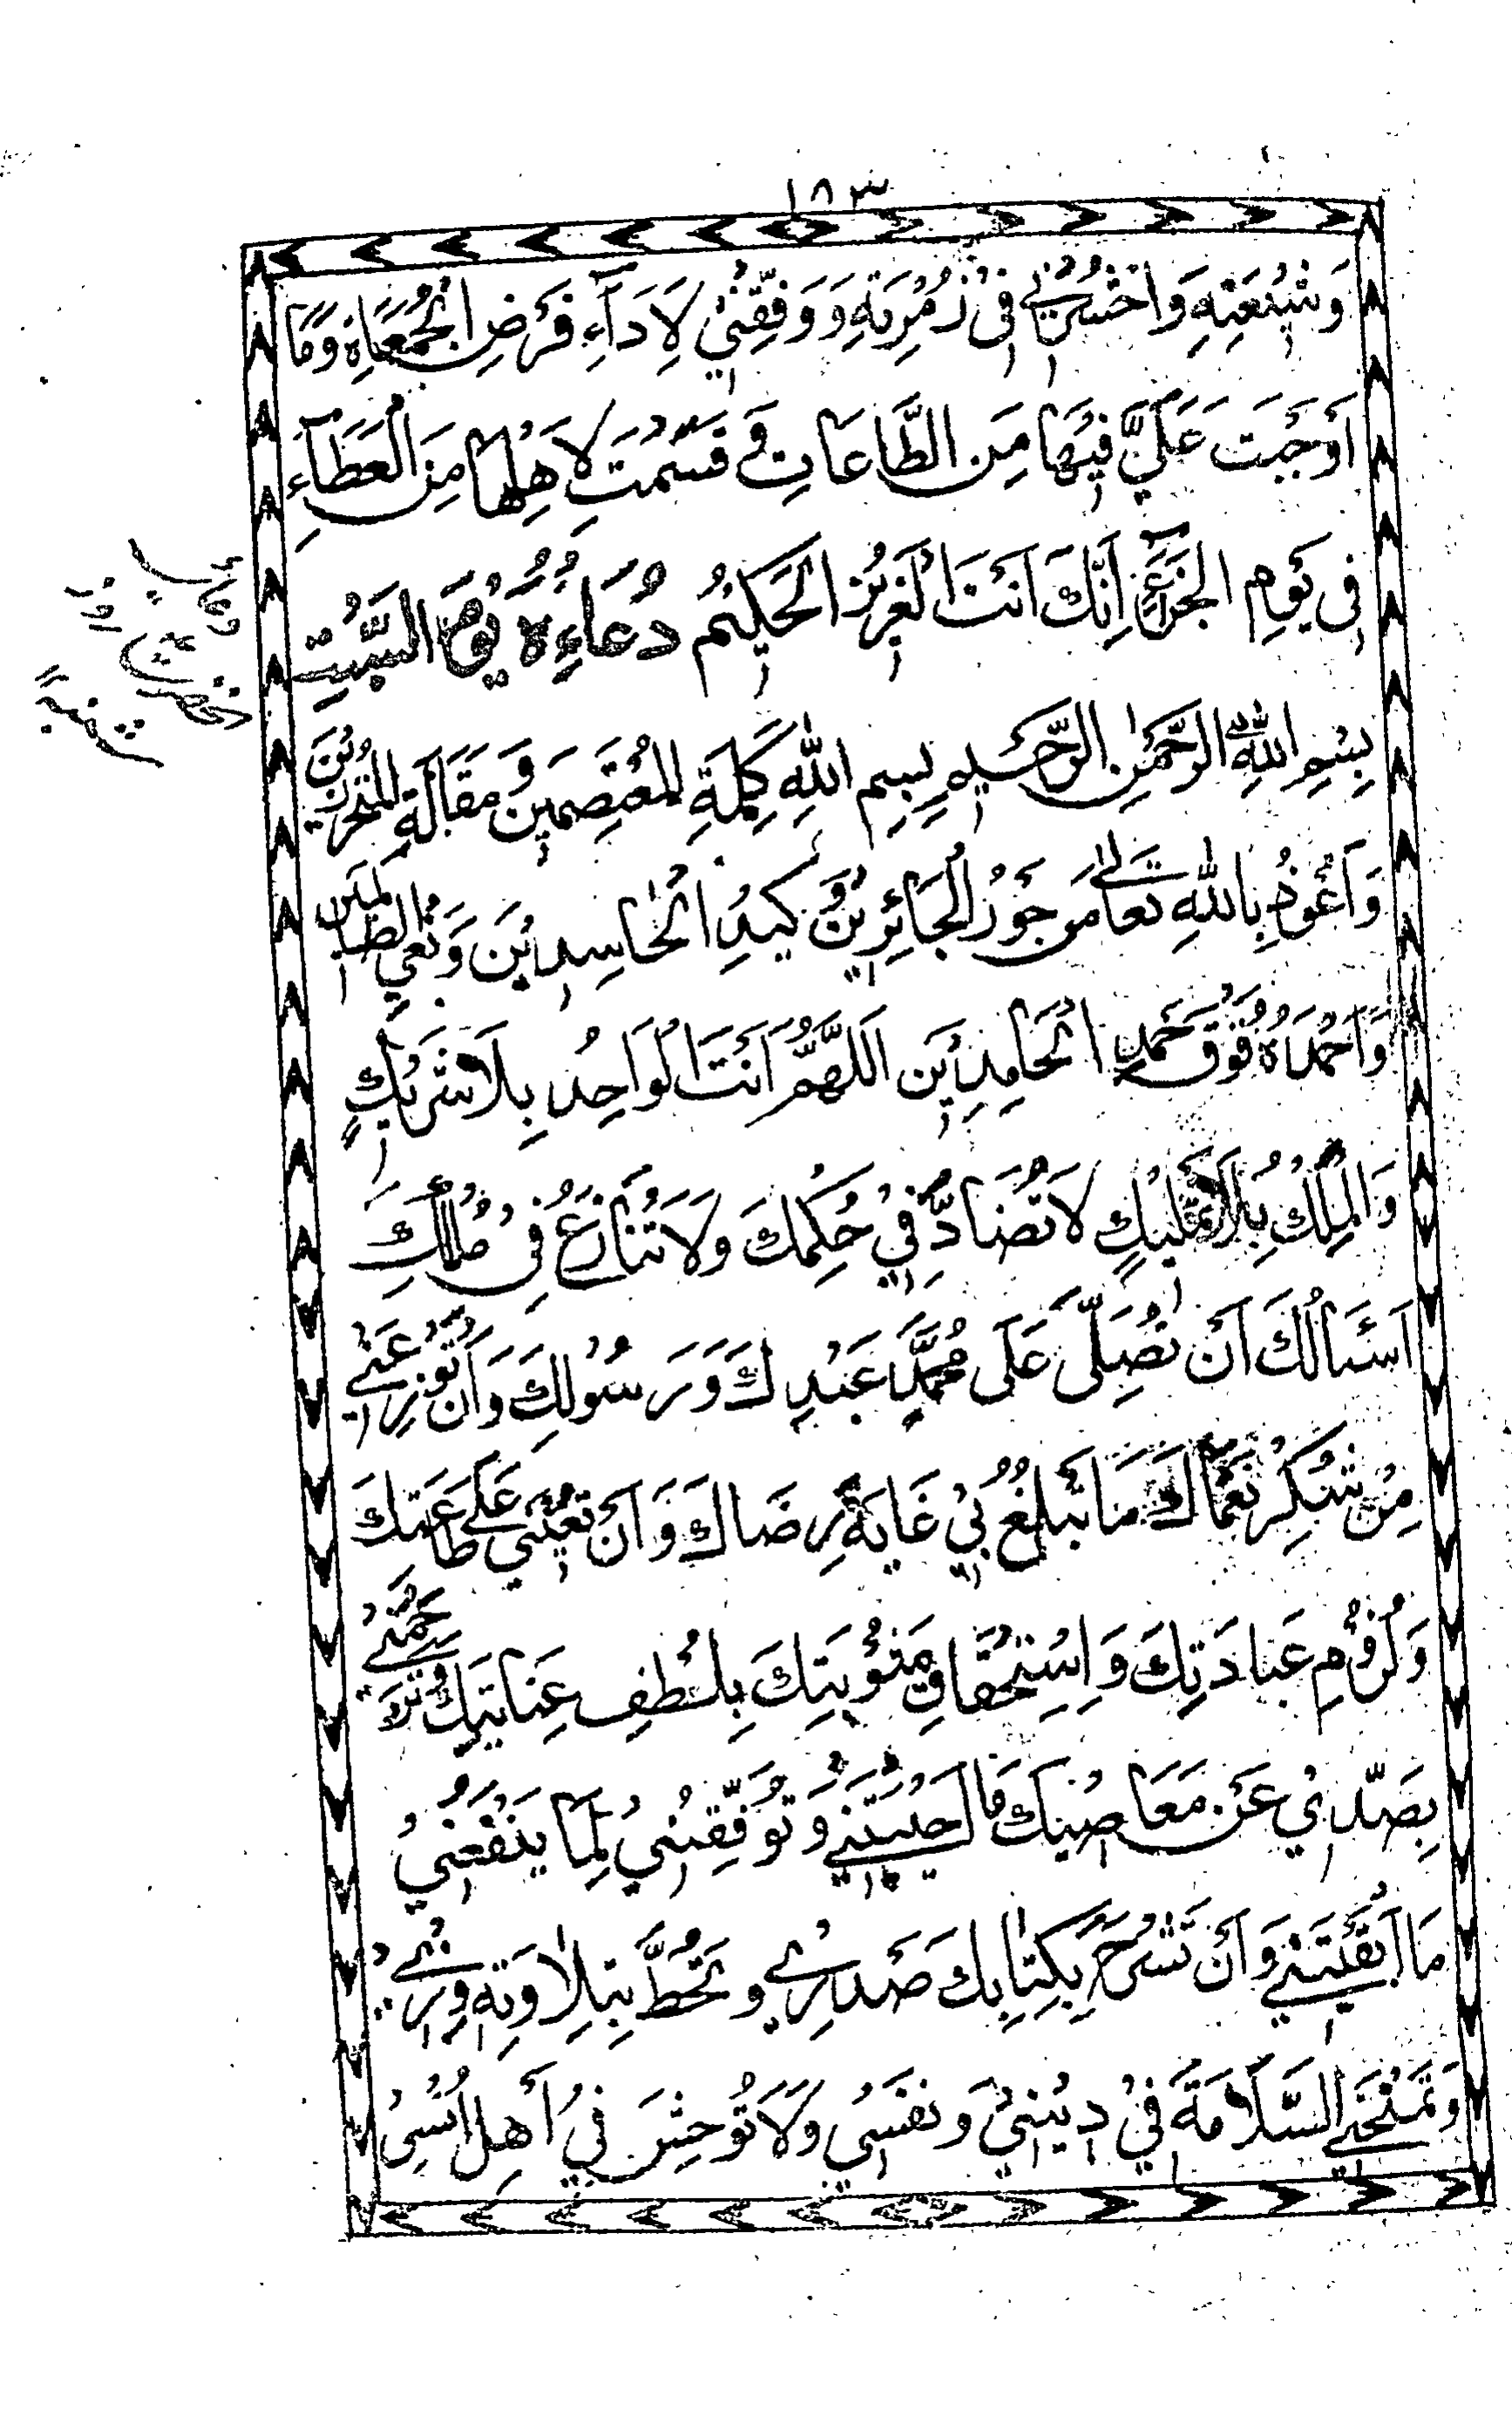 ١٨٣
وَشِيْعَتِهِ وَاحْشُرْنِي فِي زُمْرَتِهِ وَوَفِّقْنِي لِاَدَآءِ فَرْضِ الْجُمُعَاتِ وَمَا
اَوْجَبْتَ عَلَيَّ فِيْهَا مِنَ الطَّاعَاتِ وَ قَسَمْتَ لِاَهْلِهَا مِنَ الْعَطَآءِ
فِي يَوْمِ الْجَزَآءِ اِنَّكَ اَنْتَ الْعَزِيْزُ الْحَكِيْمُ دُعَاءُهُ يَوْمَ السَّبْتِ
دعاى
روز
شنبه
بِسْمِ اللهِ الرَّحْمٰنِ الرَّحِيْمِ بِسْمِ اللهِ كَلِمَةِ المُعْتَصِمِيْنَ وَمَقَالَةِ المُتَحَرِّزِيْنَ
وَاَعُوْذُ بِاللهِ تَعَالٰى مِنْ جَوْرِ الْجَائِرِيْنَ وَ كَيْدِ الْحَاسِدِيْنَ وَبَغْيِ الظَّالِمِيْنَ
وَاَحْمَدُهُ فَوْقَ حَمْدِ الْحَامِدِيْنَ اَللّٰهُمَّ اَنْتَ الْوَاحِدُ بِلَا شَرِيْكٍ
وَالْمَلِكُ بِلَا تَمْلِيْكٍ لَا تُضَادُّ فِيْ حُكْمِكَ وَلَا تُنَازَعُ فِي مُلْكِكَ
اَسْئَالُكَ اَنْ تُصَلِّيَ عَلَى مُحَمَّدٍ عَبْدِكَ وَرَسُوْلِكَ وَاَنْ تُوْزِعَنِيْ
مِنْ شُكْرِ نَعْمَآكَ مَا تَبْلُغُ بِيْ غَايَةَ رِضَاكَ وَ اَنْ تُعِيْنَنِيْ عَلٰى طَاعَتِكَ
وَ لُزُوْمِ عِبَادَتِكَ وَ اِسْتِحْقَاقِ مَثُوْبَتِكَ بِلُطْفِ عِنَايَتِكَ وَ تَرْحَمَنِيْ
بِصَدِّيْ عَنْ مَعَاصِيْكَ مَا اَحْيَيْتَنِيْ وَ تُوَفِّقَنِيْ لِمَا يَنْفَعُنِيْ
مَا اَبْقَيْتَنِيْ وَ اَنْ تَشْرَحَ بِكِتَابِكَ صَدْرِيْ وَ تَحُطَّ بِتِلَاوَتِهِ وِزْرِيْ
وَتَمْنَحَنِيْ السَّلَامَةَ فِيْ دِيْنِيْ وَ نَفْسِيْ وَلَا تُوْحِشَ فِيْ اَهْلَ اُنْسِيْ